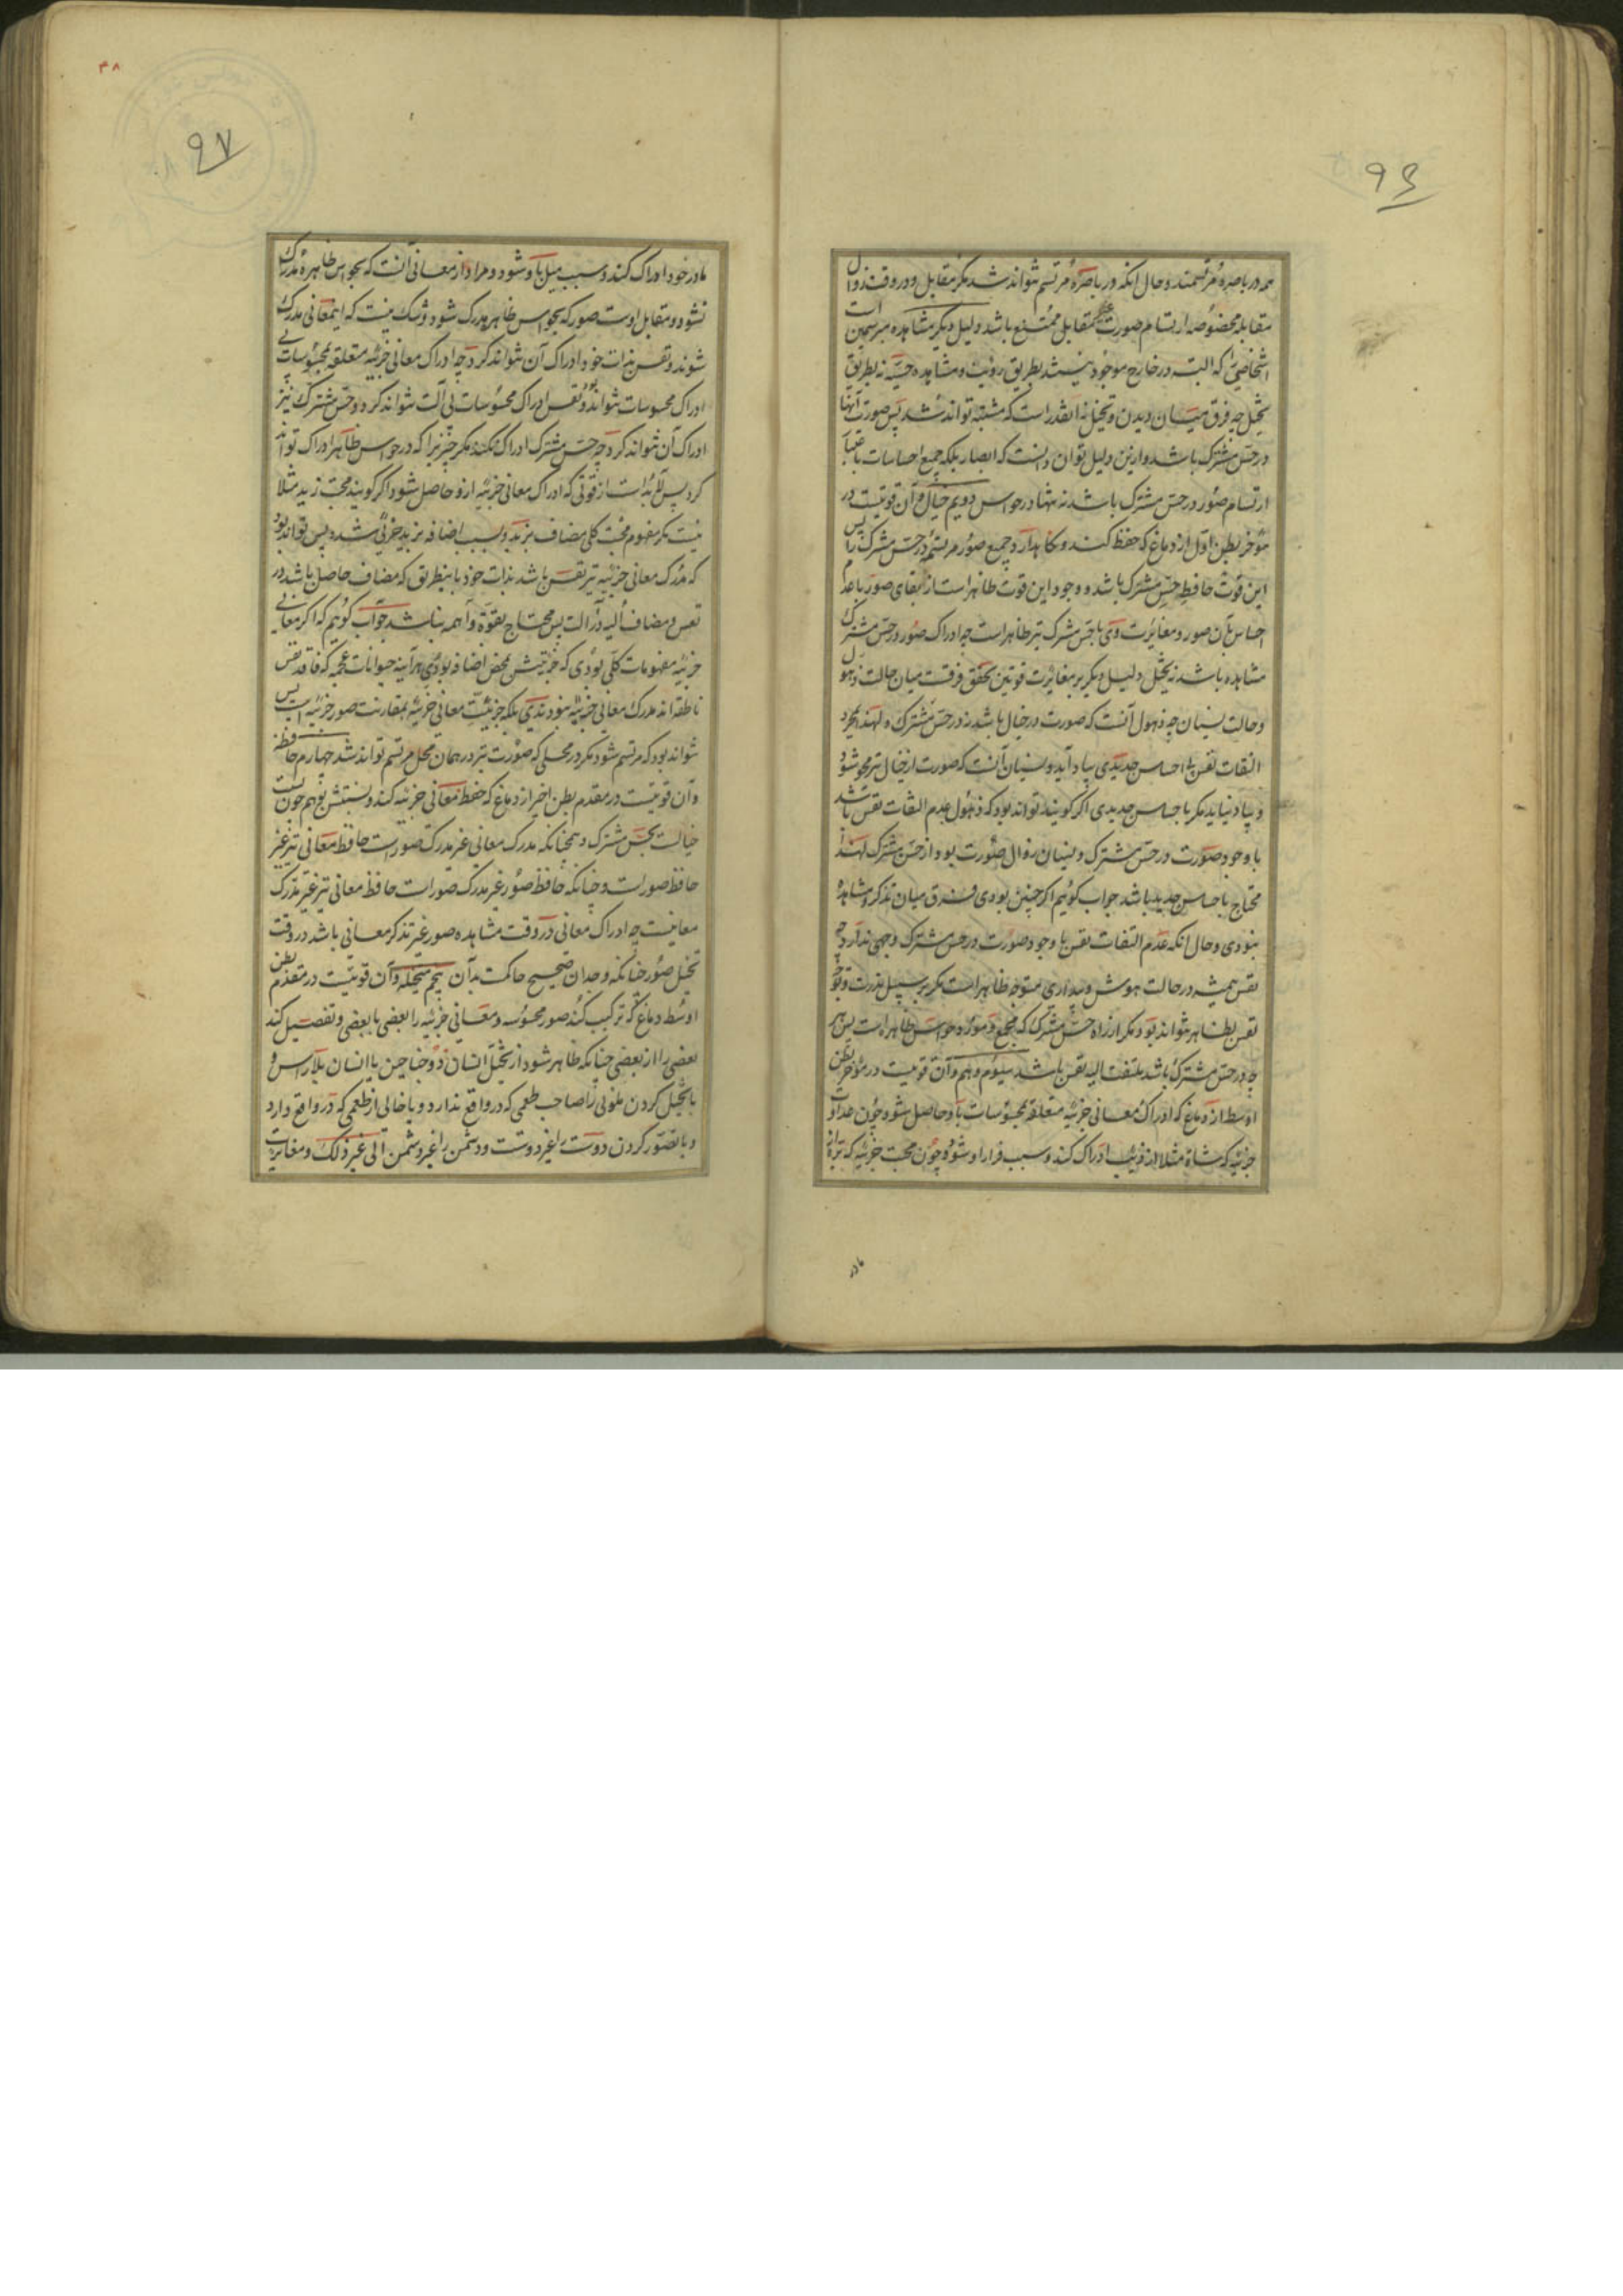 ۹۶
همه در باصره مرتسمند و حال انکه در باصره مرتسم نتواند شد مکر مقابل و در وقت زوال
مقابله مخصوصه ارتسام صورت مقابل ممتنع باشد دلیل دیکر مشاهده مبرسمین است
اشخاصی را که البته در خارج موجود نیستند بطریق رؤیت و مشاهده حسیه نه بطریق
تخیل چه فرق میان دیدن و تخیل نه آنقدر است که مشتبه تواند شد پس صورت آنها
در حس مشترک باشد و ازین دلیل توان دانست که ابصار بلکه جمیع احساسات باعتبار
ارتسام صور در حس مشترک باشد نه تنها در حواس دویم خیال و آن قوتیست در
مؤخر بطن اول از دماغ که حفظ کند و نکاهدارد جمیع صور مرتسمه در حس مشترک را پس
این قوت حافظ حس مشترک باشد و وجود این قوت ظاهر است از بقای صور با عدم
احساس بآن صور و مغایرت وی با حس مشترک نیز ظاهر است چه ادراک صور در حس مشترک
مشاهده باشد نه تخیل و دلیل دیکر بر مغایرت قوتین تحقق فرقست میان حالت ذهول
و حالت نسیان چه ذهول آنست که صورت در خیال باشد نه در حس مشترک و لهذا بمجرد
التفات نفس بی احساس جدیدی بیاد آید و نسیان آنست که صورت از خیال نیز محو شود
و بیاد نیاید مکر باحساس جدیدی اکر کویند تواند بود که ذهول عدم التفات نفس باشد
با وجود صورت در حس مشترک و نسیان زوال صورت بود از حس مشترک لهذا
محتاج باحساس جدید باشد جواب کوئیم اکر چنین بودی فرق میان تذکر و مشاهده
نبودی و حال انکه عدم التفات نفس با وجود صورت در حس مشترک وجهی ندارد چه
نفس همیشه در حالت هوش و بیداری متوجه ظاهر است مکر بر سبیل ندرت و توجه
نفس بظاهر نتواند بود مکر از راه حس مشترک که مجمع و مورد حواس ظاهره است پس هر
چه در حس مشترک باشد ملتفت الیه نفس باشد سیوم وهم و آن قوتیست در مؤخر بطن
اوسط از دماغ که ادراک معانی جزئیه متعلقه بمحسوسات باو حاصل شود چون عداوت
جزئیه که شاة مثلا از ذئب ادراک کند و سبب فرار او شود و چون محبت جزئیه که بره از
مادر
۴۸
۹۷
مادر خود ادراک کند و سبب میل باو شود و مراد از معانی آنست که بحواس ظاهره مدرک
نشود و مقابل اوست صور که بحواس ظاهر مدرک شود و شک نیست که اینمعانی مدرک
شوند و نفس بذات خود ادراک آن نتواند کرد چه ادراک معانی جزئیه متعلقه بمحسوسات بی
ادراک محسوسات نتواند بود و نفس ادراک محسوسات بی آلت نتواند کرد و حس مشترک نیز
ادراک آن نتواند کرد چه حس مشترک ادراک نکند مکر چیزیرا که در حواس ظاهر ادراک تواند
کرد پس لابد است از قوتی که ادراک معانی جزئیه ازو حاصل شود اکر کویند محبت زید مثلا
نیست مکر مفهوم محبت کلی مضاف بزید و بسبب اضافه بزید جزئی شده پس تواند بود
که مدرک معانی جزئیه نیز نفس باشد بذات خود باینطریق که مضاف حاصل باشد در
نفس و مضاف الیه در آلت پس محتاج بقوة واهمه نباشد جواب کوئیم که اکر معانی
جزئیه مفهومات کلی بودی که جزئیتش بمحض اضافه بودی هر آینه حیوانات عجمه که فاقد نفس
ناطقه اند مدرک معانی جزئیه نبودندی بلکه جزئیت معانی جزئیه بمقارنت صور جزئیه است پس
نتواند بود که مرتسم شود مکر در محلی که صورت نیز در همان محل مرتسم تواند شد چهارم حافظه
و آن قوتیست در مقدم بطن اخیر از دماغ که حفظ معانی جزئیه کند و نسبتش بوهم چون نسبت
خیالست بحس مشترک و همچنانکه مدرک معانی غیر مدرک صور است حافظ معانی نیز غیر
حافظ صور است و چنانکه حافظ صور غیر مدرک صور است حافظ معانی نیز غیر مدرک
معانیست چه ادراک معانی در وقت مشاهده صور غیر تذکر معانی باشد در وقت
تخیل صور چنانکه وجدان صحیح حاکمست بدآن پنجم متخیله و آن قوتیست در مقدم بطن
اوسط دماغ که ترکیب کند صور محسوسه و معانی جزئیه را بعضی با بعضی و تفصیل کند
بعضی را از بعضی چنانکه ظاهر شود از تخیل انسان ذو جناحین یا انسان بلا راس و
یا تخیل کردن ملونی را صاحب طعمی که در واقع ندارد و یا خالی از طعمی که در واقع دارد
و یا تصور کردن دوست را غیر دوست و دشمن را غیر دشمن الی غیر ذلک و مغایرت